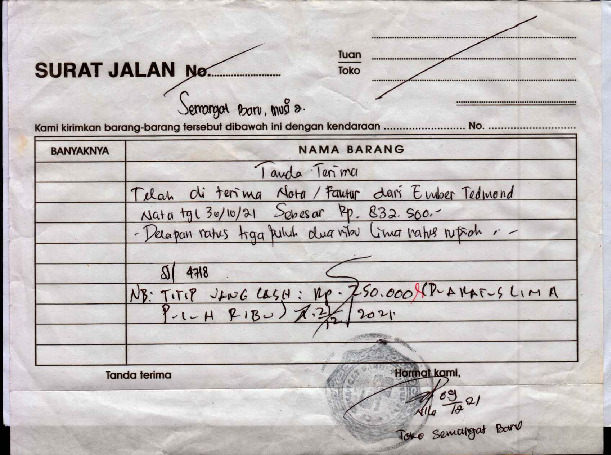 SURAT JALAN No.
Tuan
Toko
Semangat Baru, Musi 2.
Kami kirimkan barang-barang tersebut dibawah ini dengan kendaraan ........................ No. ................
BANYAKNYA NAMA BARANG
Tanda Terima
Telah di terima Nota / Faktur dari Ember Tedmond
Nata tgl 30/10/21 Sebesar Rp. 832.500.-
- Delapan ratus tiga puluh dua ribu lima ratus rupiah
SJ 4718
NB: TITIP UANG CASH : Rp. 250.000 (DUA RATUS LIMA
PULUH RIBU) 2021
Tanda terima Hormat kami,
09/12 21
Toko Semangat Baru